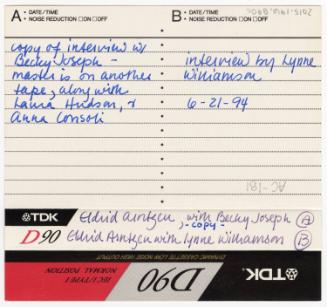 A • DATE/TIME
• NOISE REDUCTION □ON □OFF
B • DATE/TIME
• NOISE REDUCTION □ON □OFF
copy of interview w/
Becky Joseph -
master is on another
tape, along with
Laura Hudson, &
Anna Consoli
interview by Lynne
Williamson
6-21-94
AC-181
TDK Eldrid Arntzen, with Becky Joseph A
-copy-
D90 Eldrid Arntzen with Lynne Williamson B
DYNAMIC CASSETTE LOW NOISE HIGH OUTPUT
IEC I/TYPE I
NORMAL POSITION
D90
TDK